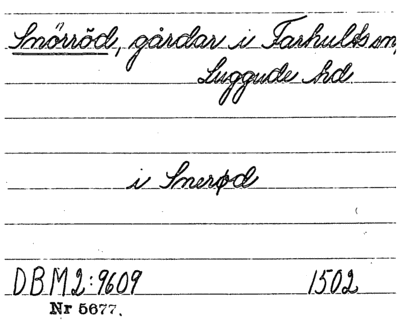 Snörröd, gårdar i Farhults sn,
Luggude hd.
i Snerød
DBM2:9609 1502
Nr 5677.